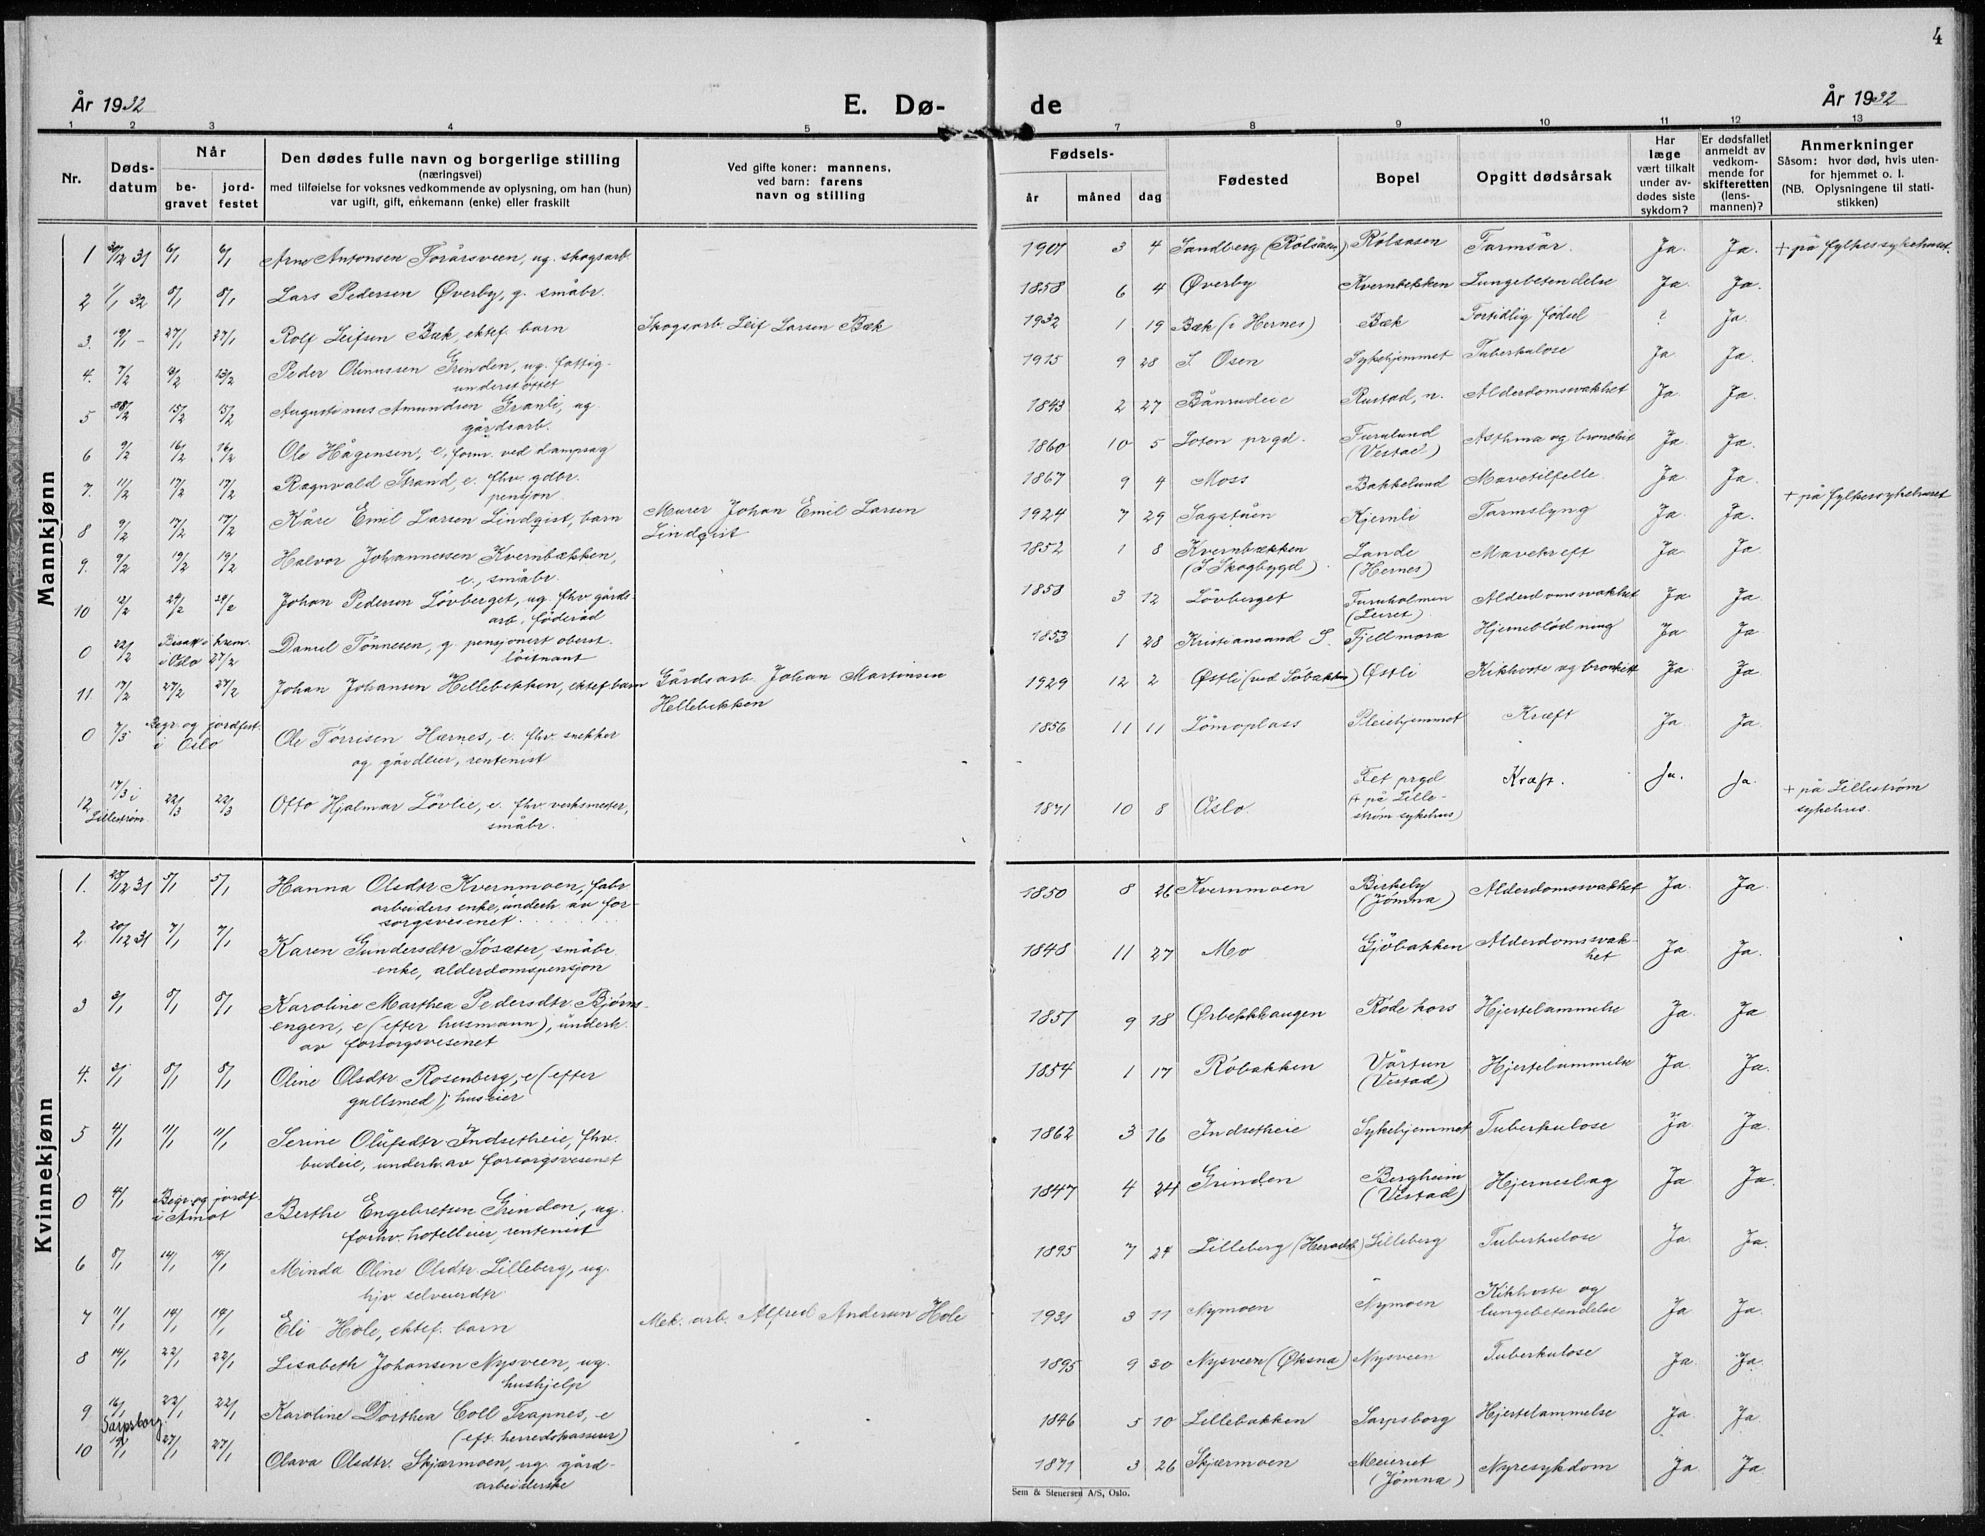 4
År 1932
E. Dø-
de
År 1932
1 2 3 4 5 7 8 9 10 11 12 13
Nr.
Døds-
datum
Når
be-
gravet
jord-
festet
Den dødes fulle navn og borgerlige stilling
(næringsvei)
med tilføielse for voksnes vedkommende av oplysning, om han (hun)
var ugift, gift, enkemann (enke) eller fraskilt
Ved gifte koner: mannens,
ved barn: farens
navn og stilling
Fødsels-
år
måned
dag
Fødested
Bopel
Opgitt dødsårsak
Har
læge
vært tilkalt
under av-
dødes siste
sykdom?
Er dødsfallet
anmeldt av
vedkom-
mende for
skifteretten
(lens-
mannen)?
Anmerkninger
Såsom: hvor død, hvis uten-
for hjemmet o. l.
(NB. Oplysningene til stati-
stikken)
Mannkjønn
1 30/12 31 6/1 6/1 Arne Antonsen Torårsveen, ug. skogsarb. 1907 3 4 Sandberg (Rölsåsen) Rölsåsen Tarmsår. Ja. Ja. + på fylkessykehuset.
2 1/1 32 8/1 8/1 Lars Pedersen Øverby, g. småbr. 1858 6 4 Øverby Kvernbekken Lungebetendelse Ja. Ja.
3. 19/1 – 27/1 27/1 Rolf Leifsen Bæk, ektef. barn Skogsarb. Leif Larsen Bæk 1932 1 19 Bæk (i Hernes) Bæk Fortidlig fødsel ? Ja.
4. 7/2 13/2 Peder Olinussen Grinden, ug. fattig-
understöttet 1915 9 28 S Osen Sykehjemmet Tuberkulose Ja. Ja.
5 15/2 15/2 Augustinus Amundsen Granli, ug
gårdsarb. 1843 2 27 Bånrudeie Rustad, n. Alderdomsvakhet Ja. Ja.
6 9/2 16/2 16/2 Ole Hågensen, e, form. ved dampsag 1860 10 5 Löten prgd. Furulund
(Vestad) Asthma og bronchit Ja. Ja.
7. 11/2 17/2 17/2 Ragnvald Strand, e. fhv. gdbr.
pensjon. 1867 9 4 Moss Bakkelund Mavetilfelle Ja. Ja.
8 9/2 17/2 17/2 Kåre Emil Larsen Lindqist, barn Murer Johan Emil Larsen
Lindqist 1924 7 29 Sagstuen Kjernli Tarmslyng Ja. Ja. + på fylkessykehuset
9. 9/2 19/2 19/2 Halvor Johannessen Kvernbækken,
e., småbr. 1852 1 8 Kvernbækken
(S Skogbygd) Lande
(Hernes) Mavekreft Ja Ja
10 12/2 24/2 24/2 Johan Pedersen Lövberget, ug. fhv gårds-
arb, föderåd 1858 3 12 Lövberget Furuholmen
(Leiret) Alderdomsvakhet Ja. Ja.
0 22/2 Bisatt o krem.
i Oslo 27/2 Daniel Tönnesen, g pensjonert oberst
löitnant 1853 1 28 Kristiansand S. Fjellmora Hjerneblödning Ja Ja.
11. 17/2 27/2 27/2 Johan Johansen Hellebekken, ektef barn Gårdsarb. Johan Martinsen
Hellebekken 1929 12 2 Östli (ved Söbakken) Östli Kikhoste og bronchitt Ja Ja
0 7/3 Begr. og jordfest.
i Oslo Ole Torrisen Hærnes, e. fhv. snekker
og gårdeier, rentenist 1856 11 11 Lömoplass Pleiehjemmet Kræft Ja Ja
12 17/3 i
Lilleström 22/3 22/3 Otto Hjalmar Lövlie, e. fhv. verksmester,
småbr. 1871 10 8 Oslo. Fet prgd
(+ på Lille-
ström sykehus) Kræft. Ja. Ja. + på Lillestrøm
sykehus.
Kvinnekjønn
1. 25/12 31 5/1 5/1 Hanna Olsdtr Kvernmoen, fabr
arbeiders enke, underh. av for-
sorgsvesenet. 1850 8 26 Kvernmoen Birkeby
(Jömna) Alderdomsvakhet Ja. Ja.
2. 20/12 31 7/1 7/1 Karen Gundersdtr Sösæter, småbr.
enke, alderdomspensjon 1848 11 27 Mo Gjöbakken Alderdomsvak-
het Ja. Ja.
3 3/1 8/1 8/1 Karoline Marthea Pedersdtr. Bjørns-
engen, e (efter husmann), underh.
av forsorgsvesenet 1851 9 18 Ørbekkhaugen Röde kors Hjertelammelse Ja. Ja.
4. 3/1 8/1 8/1 Oline Olsdtr Rosenberg, e (efter
gullsmed), huseier 1854 1 17 Röbakken Vårtun
(Vestad) Hjertelammelse Ja Ja.
5 4/1 11/1 11/1 Serine Olufsdtr Indsetheie, fhv.
budeie, underh. av forsorgsvesenet 1862 3 16 Indsetheie Sykehjemmet Tuberkulose Ja. Ja.
0 4/1 Begr. og jordf
i Amot Berthe Engebretsen Grinden, ug.
forhv. hotelleier, rentenist 1847 4 24 Grinden Bergheim
(Vestad) Hjerneslag Ja Ja.
6 8/1 14/1 14/1 Minda Oline Olsdtr. Lilleberg, ug.
hjv selveierdtr 1895 7 24 Lilleberg (Heradsb) Lilleberg Tuberkulose Ja. Ja.
7 11/1 14/1 14/1 Eli Hole, ektef. barn Mek. arb. Alfred Andersen Hole 1931 3 11 Nymoen Nymoen Kikhoste og
lungebetendelse Ja Ja.
8 14/1 22/1 22/1 Lisabeth Johansen Nysveen, ug.
hushjelp 1895 9 30 Nysveen (Øksna) Nysveen Tuberkulose Ja. Ja.
9 16/1
Sarpsborg 22/1 22/1 Karoline Dorthea Coll Trapnes, e
(eft. herredskasserer) 1846 5 10 Lillebakken Sarpsborg Hjertelammelse Ja Ja.
10 27/1 27/1 Olava Olsdtr. Skjærmoen, ug. gård-
arbeiderske 1871 3 26 Skjærmoen Meieriet
(Jömna) Nyresykdom Ja. Ja.
Sem & Stenersen A/S, Oslo.